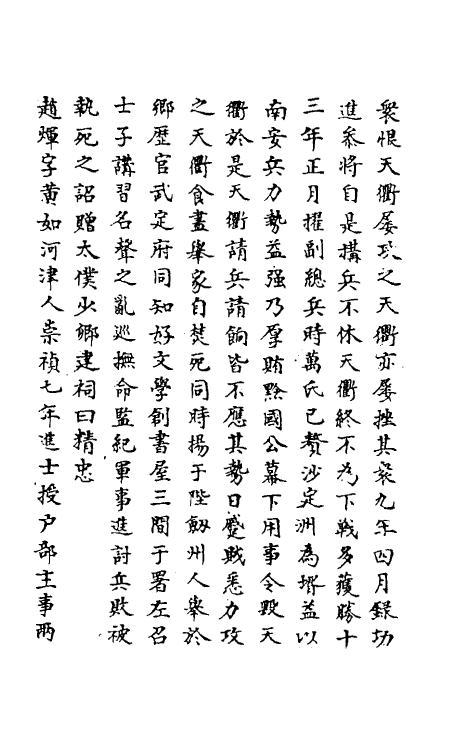 衆恨天衢屡攻之天衢亦屡挫其衆九年四月錄功
進叅將自是搆兵不休天衢終不為下戰多獲勝十
三年正月擢副總兵時萬氏已贅沙定洲為壻益以
南安兵力勢益强乃厚賄黔國公幕下用事令毀天
衢於是天衢請兵請餉皆不應其勢日蹙賊悉力攻
之天衢食盡舉家自焚死同時楊于陛劔州人舉於
鄉歷官武定府同知好文學創書屋三間于署左召
士子講習名聲之亂巡撫命監紀軍事進討兵敗被
執死之詔贈太僕少卿建祠曰精忠
趙㷆字黄如河津人崇禎七年進士授户部主事兩